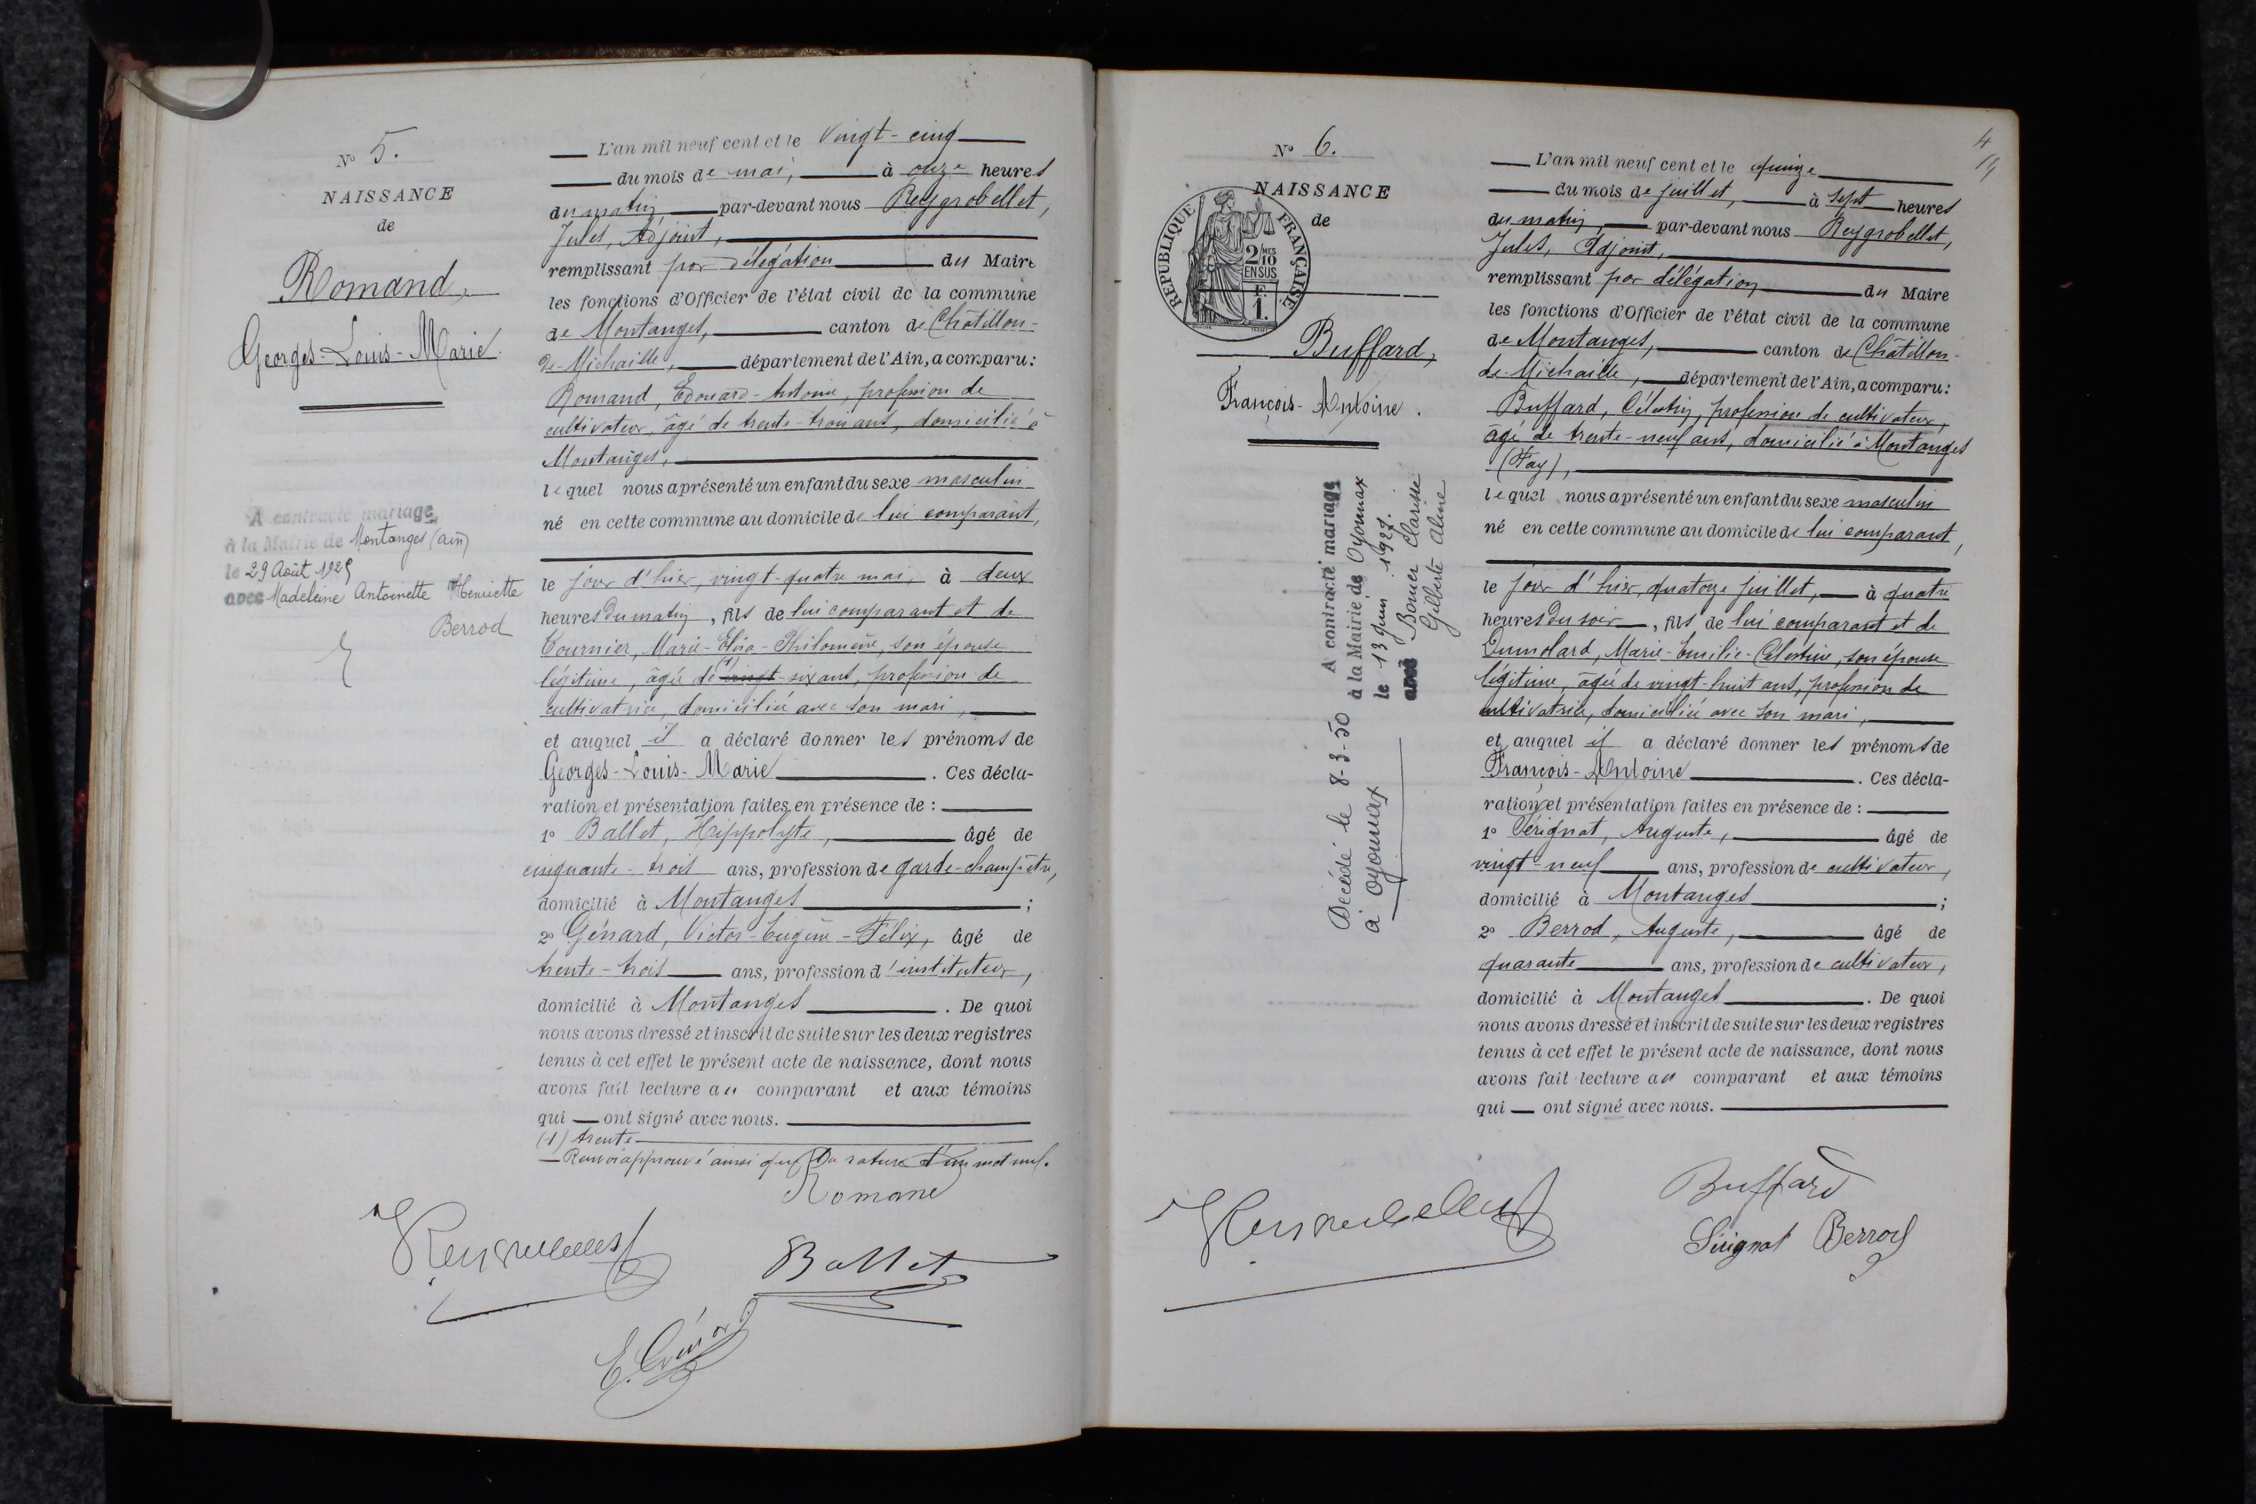 Nº 5.
NAISSANCE
de
Romand,
Georges-Louis-Marie.
A contracté mariage
à la Mairie de Montanges (Ain)
le 29 Août 1925
avec Madeleine Antoinette Henriette
Berrod
L'an mil neuf cent et le vingt-cinq
du mois de mai, à onze heures
du matin, par-devant nous Reygrobellet,
Jules, Adjoint,
remplissant par délégation du Maire
les fonctions d'Officier de l'état civil de la commune
de Montanges, canton de Châtillon-
de-Michaille, département de l'Ain, a comparu:
Romand, Edouard-Antoine, profession de
cultivateur, âgé de trente-trois ans, domicilié à
Montanges,
lequel nous a présenté un enfant du sexe masculin
né en cette commune au domicile de lui comparant,
le jour d'hier, vingt-quatre mai, à deux
heures du matin, fils de lui comparant et de
Tournier, Marie-Elisa-Philomène, son épouse
légitime, âgée de (1) vingt-six ans, profession de
cultivatrice, domiciliée avec son mari,
et auquel il a déclaré donner les prénoms de
Georges-Louis-Marie. Ces décla-
ration et présentation faites en présence de :
1º Ballet, Hippolyte, âgé de
cinquante-trois ans, profession de garde-champêtre,
domicilié à Montanges ;
2º Génard, Victor-Eugène-Félix, âgé de
trente-trois ans, profession d'instituteur,
domicilié à Montanges. De quoi
nous avons dressé et inscrit de suite sur les deux registres
tenus à cet effet le présent acte de naissance, dont nous
avons fait lecture au comparant et aux témoins
qui ont signé avec nous.
(1) trente
Renvoi approuvé ainsi que la rature d'un mot nul.
Romand
Reygrobellet
Ballet
E. Génard
4
Nº 6.
NAISSANCE
de
RÉPUBLIQUE FRANÇAISE
2/10 MES
EN SUS
F.
1.
Buffard,
François-Antoine.
A contracté mariage
à la Mairie de Oyonnax
le 13 juin 1927.
avec Bonier Clarisse
Gilberte Aline
Décédé le 8-3-50
à Oyonnax
L'an mil neuf cent et le quinze
du mois de juillet, à sept heures
du matin, par-devant nous Reygrobellet,
Jules, Adjoint,
remplissant par délégation du Maire
les fonctions d'Officier de l'état civil de la commune
de Montanges, canton de Châtillon-
de-Michaille, département de l'Ain, a comparu:
Buffard, Célestin, profession de cultivateur,
âgé de trente-neuf ans, domicilié à Montanges
(Fay),
lequel nous a présenté un enfant du sexe masculin
né en cette commune au domicile de lui comparant,
le jour d'hier quatorze juillet, à quatre
heures du soir, fils de lui comparant et de
Dumolard, Marie-Emilie-Célestine, son épouse
légitime, âgée de vingt-huit ans, profession de
cultivatrice, domiciliée avec son mari,
et auquel il a déclaré donner les prénoms de
François-Antoine. Ces décla-
ration et présentation faites en présence de :
1º Sérignat, Auguste, âgé de
vingt-neuf ans, profession de cultivateur,
domicilié à Montanges ;
2º Berrod, Auguste, âgé de
quarante ans, profession de cultivateur,
domicilié à Montanges. De quoi
nous avons dressé et inscrit de suite sur les deux registres
tenus à cet effet le présent acte de naissance, dont nous
avons fait lecture au comparant et aux témoins
qui ont signé avec nous.
Buffard
Reygrobellet
Sérignat Berrod